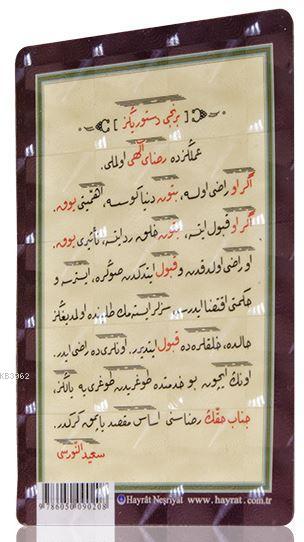 [ برنجی دستوریکز ]
عملکزده رضای الٓهی اولملی.
اگر او راضی اولسه، بتون دنیا کوسسه، اهمیتی یوق.
اگر او قبول ایتسه، بتون خلق رد ایتسه، تأثیری یوق.
او راضی اولدقدن و قبول ایتدکدن صوکره، ایسترسه و
حکمتی اقتضا ایدرسه، سزلر ایسته‌مك طلبنده اولمدیغکز
حالده، خلقلره ده قبول ایتدیرر، اونلری ده راضی ایدر.
اونك ایچون بو خدمتده طوغریدن طوغری یه یالکز،
جناب حقك رضاسنی اساس مقصد یاپمق کرکدر.
سعید النورسی
9786050090208
Hayrât Neşriyat www.hayrat.com.tr
KB3962